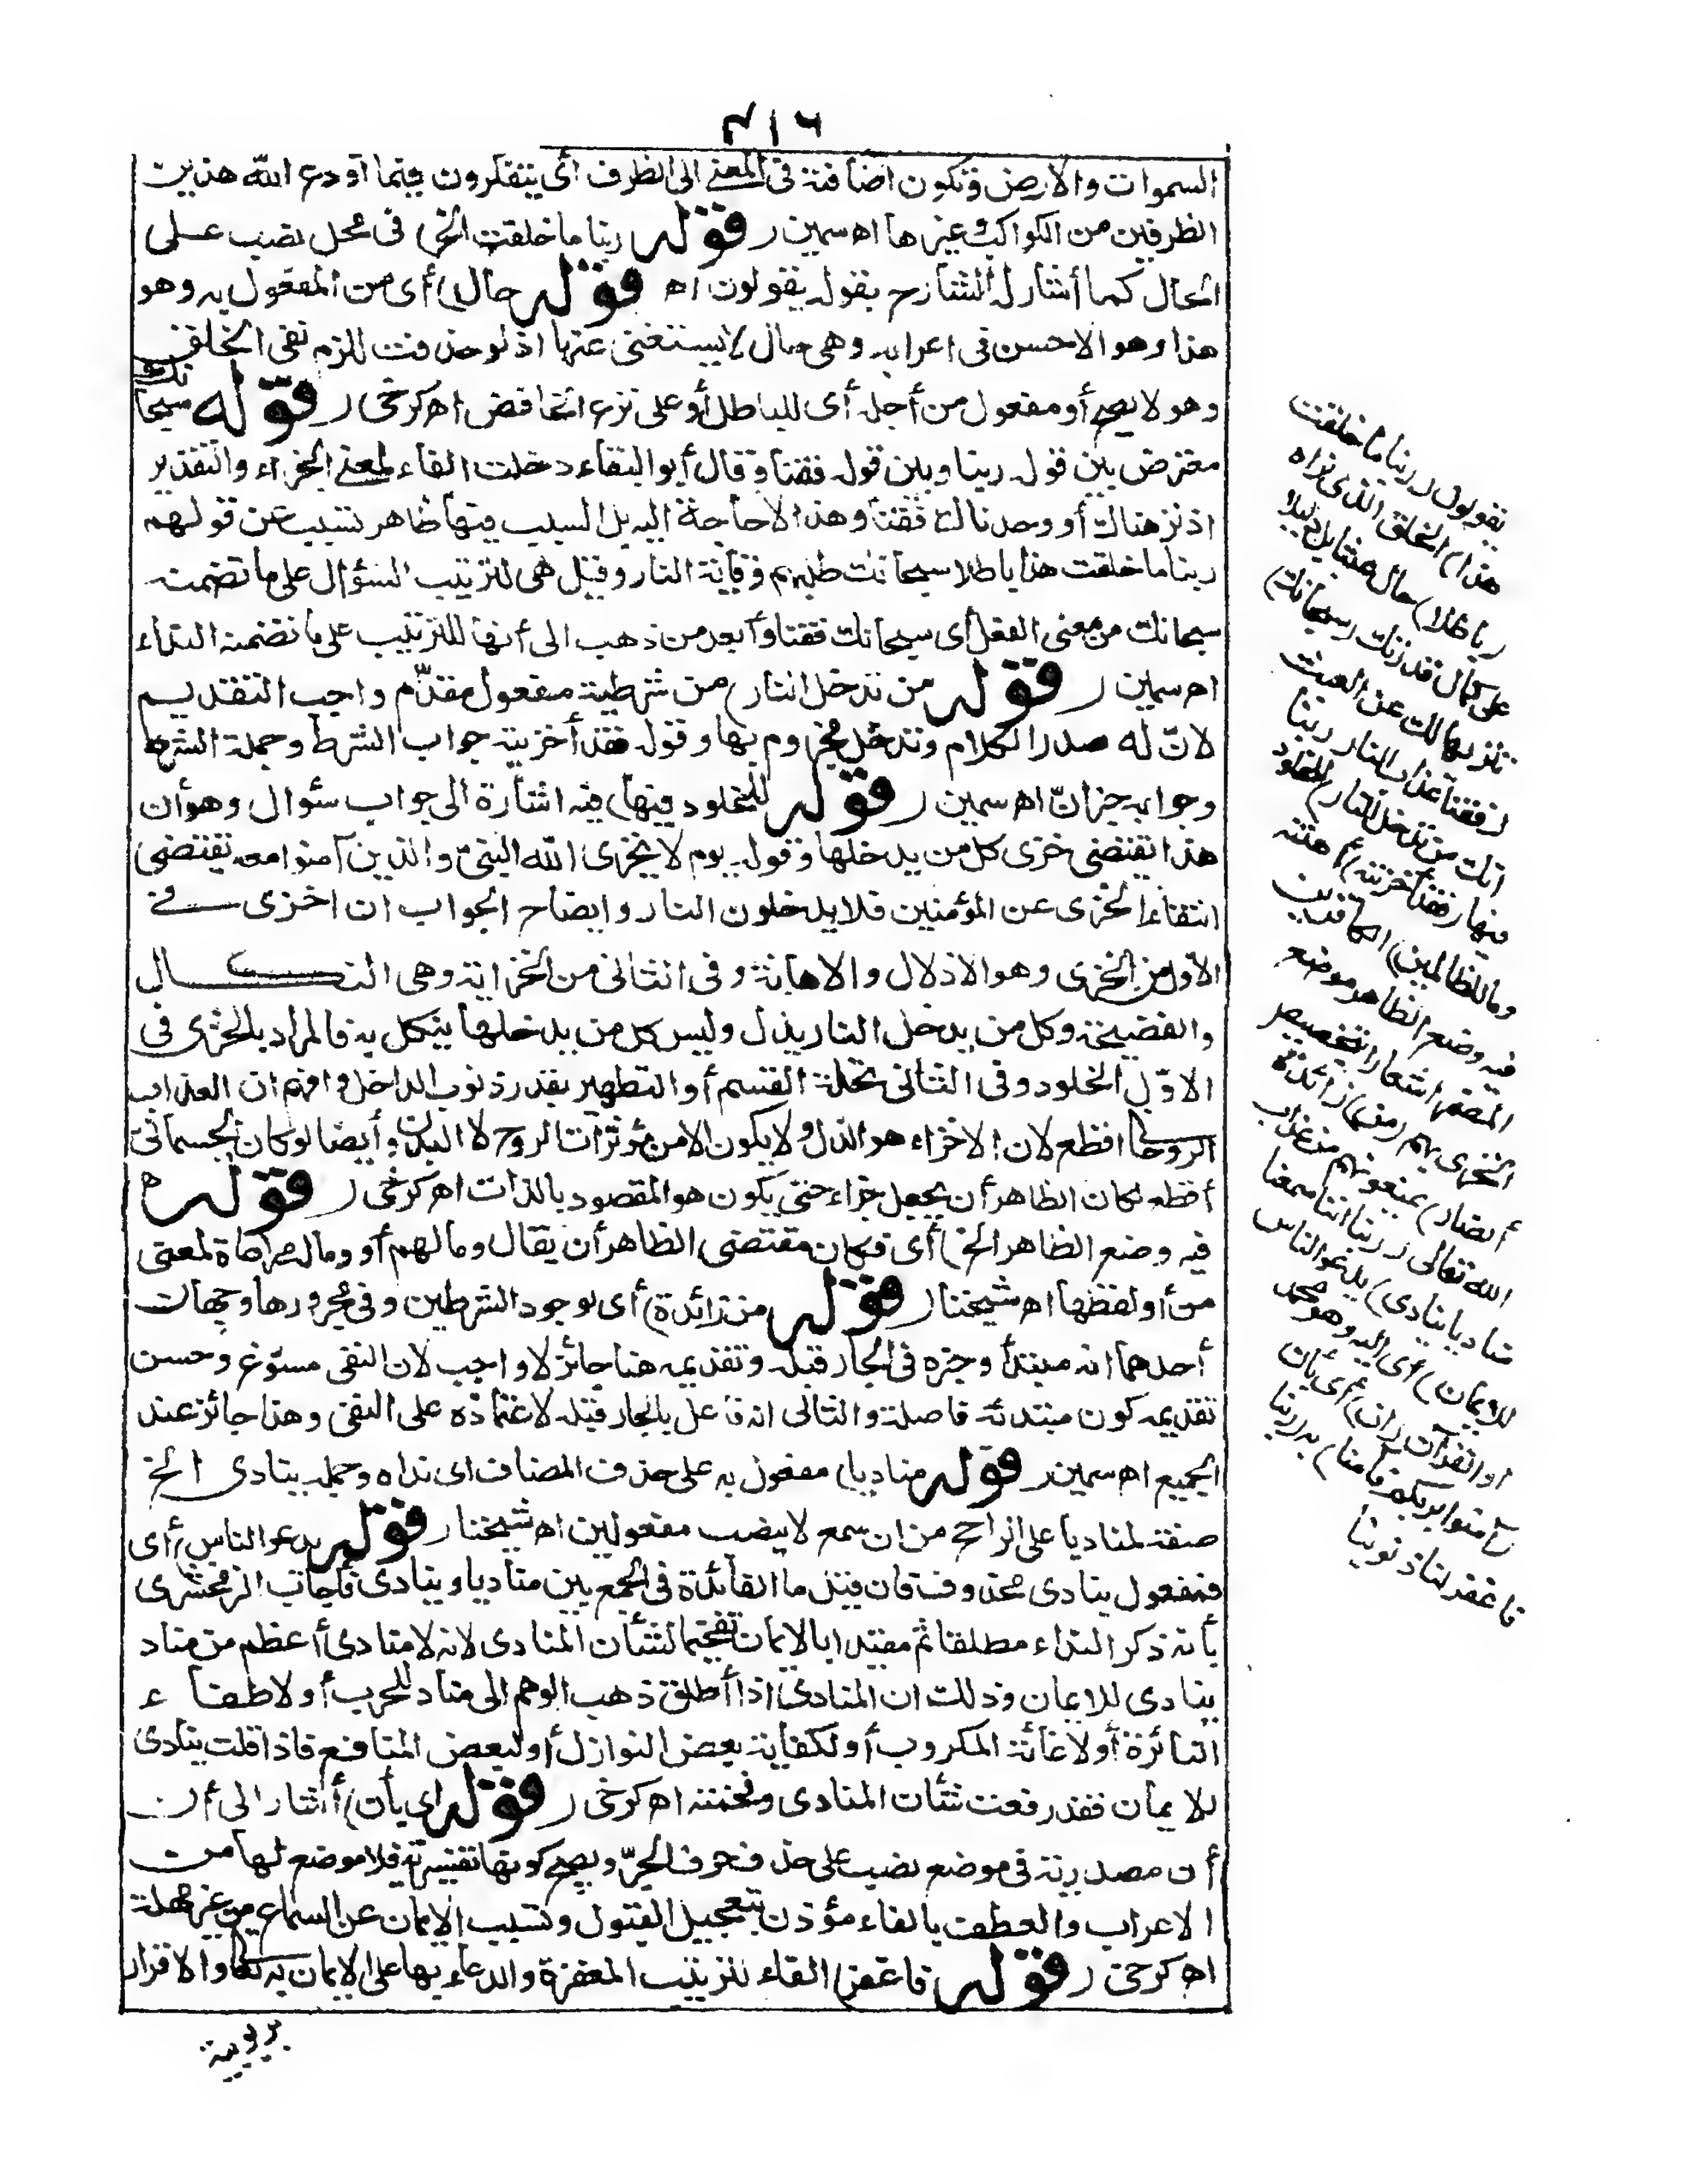 ٤١٦
السموات والارض وتكون اضافته فى المعنى الى الظرف أى يتفكرون فيما أودع الله هذين
الظرفين من الكواكب وغيرها اه سمين (قوله ربنا ما خلقت الخ) فى محل نصب على
الحال كما أشار له الشارح بقوله يقولون اه قوله حال) أى من المفعول به وهو
هذا وهو الاحسن فى اعرابه وهى حال لا يستغنى عنها اذ لو حذفت للزم نفى الخلق
وهو لا يصح أو مفعول من أجله أى للباطل أو على نزع الخافض اه كرخى (قوله سبحانك
معترض بين قوله ربنا وبين قوله فقنا وقال أبو البقاء دخلت الفاء لمعنى الجزاء والتقدير
اذ نزهناك أو وحدناك فقنا وهذا لا حاجة اليه بل السبب فيها ظاهر تسبب عن قولهم
ربنا ما خلقت هذا باطلا سبحانك طلبهم وقاية النار وقيل هى لترتيب السؤال على ما تضمنه
سبحانك من معنى الفعل أى سبحانك فقنا وأبعد من ذهب الى أنها للترتيب على ما تضمنه النداء
اه سمين (قوله من تدخل النار) من شرطية مفعول مقدّم واجب التقديم
لانّ له صدر الكلام وتدخل مجزوم بها وقوله فقد أخزيته جواب الشرط وجملة الشرط
وجوابه خبر انّ اه سمين (قوله للخلود فيها) فيه اشارة الى جواب سئوال وهو أن
هذا يقتضى خزى كل من يدخلها وقوله يوم لا يخزى الله النبىّ والذين آمنوا معه يقتضى
انتفاء الخزى عن المؤمنين فلا يدخلون النار وايضاح الجواب ان اخزى فى
الاوّل من الخزى وهو الاذلال والاهانة وفى الثانى من الخزاية وهى النكال
والفضيحة وكل من يدخل النار يذل وليس كل من يدخلها ينكل به فالمراد بالخزى فى
الاوّل الخلود وفى الثانى تحلة القسم أو التطهير بقدر ذنوب الداخل وافهم ان العذاب
الروحانى افظع لان الاخزاء هو الذل ولا يكون الا من مؤثرات الروح لا البدن وأيضا لو كان الجسمانى
أفظع لكان الظاهر أن يجعل جزاء حتى يكون هو المقصود بالذات اه كرخى (قوله
فيه وضع الظاهر الخ) أى فكان مقتضى الظاهر أن يقال وما لهم أو وما له مراعاة لمعنى
من أو لفظها اه شيخنا (قوله من زائدة) أى لوجود الشرطين وفى مجرورها وجهان
أحدهما انه مبتدأ وخبره فى الجار قبله وتقديمه هنا جائز لا واجب لان النفى مسوّغ وحسن
تقديمه كون مبتدئه فاصلة والثانى انه فاعل بالجار قبله لاعتماده على النفى وهذا جائز عند
الجميع اه سمين (قوله مناديا) مفعول به على حذف المضاف اى نداه وجملة ينادى الخ
صفة لمناديا على الراجح من ان سمع لا ينصب مفعولين اه شيخنا (قوله يدعو الناس) أى
فمفعول ينادى محذوف فان قيل ما الفائدة فى الجمع بين مناديا وينادى فأجاب الزمخشرى
بأنه ذكر النداء مطلقا ثم مقيدا بالايمان تفخيما لشأن المنادى لانه لا منادى أعظم من مناد
ينادى للايمان وذلك ان المنادى اذا أطلق ذهب الوهم الى مناد للحرب أو لاطفاء
النائرة أو لاغاثة المكروب أو لكفاية بعض النوازل أو لبعض المنافع فاذا قلت ينادى
للايمان فقد رفعت شأن المنادى وفخمته اه كرخى (قوله اى بأن) أشار الى أن
أن مصدرية فى موضع نصب على حذف حرف الجرّ ويصح كونها تفسيرية فلا موضع لها من
الاعراب والعطف بالفاء مؤذن بتعجيل القبول وتسبب الايمان عن السماع من غير مهلة
اه كرخى (قوله فاغفر) الفاء لترتيب المغفرة والدعاء بها على الايمان به تعالى والاقرار
بربوبيته
يقولون (ربنا ما خلقت
هذا) الخلق الذى نراه
(باطلا) حال عبثا بل دليلا
على كمال قدرتك (سبحانك)
تنزيها لك عن العبث
(فقنا عذاب النار ربنا
انك من تدخل النار) للخلود
فيها (فقد أخزيته) أهنته
وما للظالمين) الكافرين
فيه وضع الظاهر موضع
المضمر اشعارا بتخصيص
الخزى بهم (من) زائدة
أنصار) يمنعونهم من عذاب
الله تعالى (ربنا اننا سمعنا
مناديا ينادى) يدعو الناس
للايمان) أى اليه وهو محمد
أو القرآن (أن) أى بأن
آمنوا بربكم فآمنا) به (ربنا
فاغفر لنا ذنوبنا